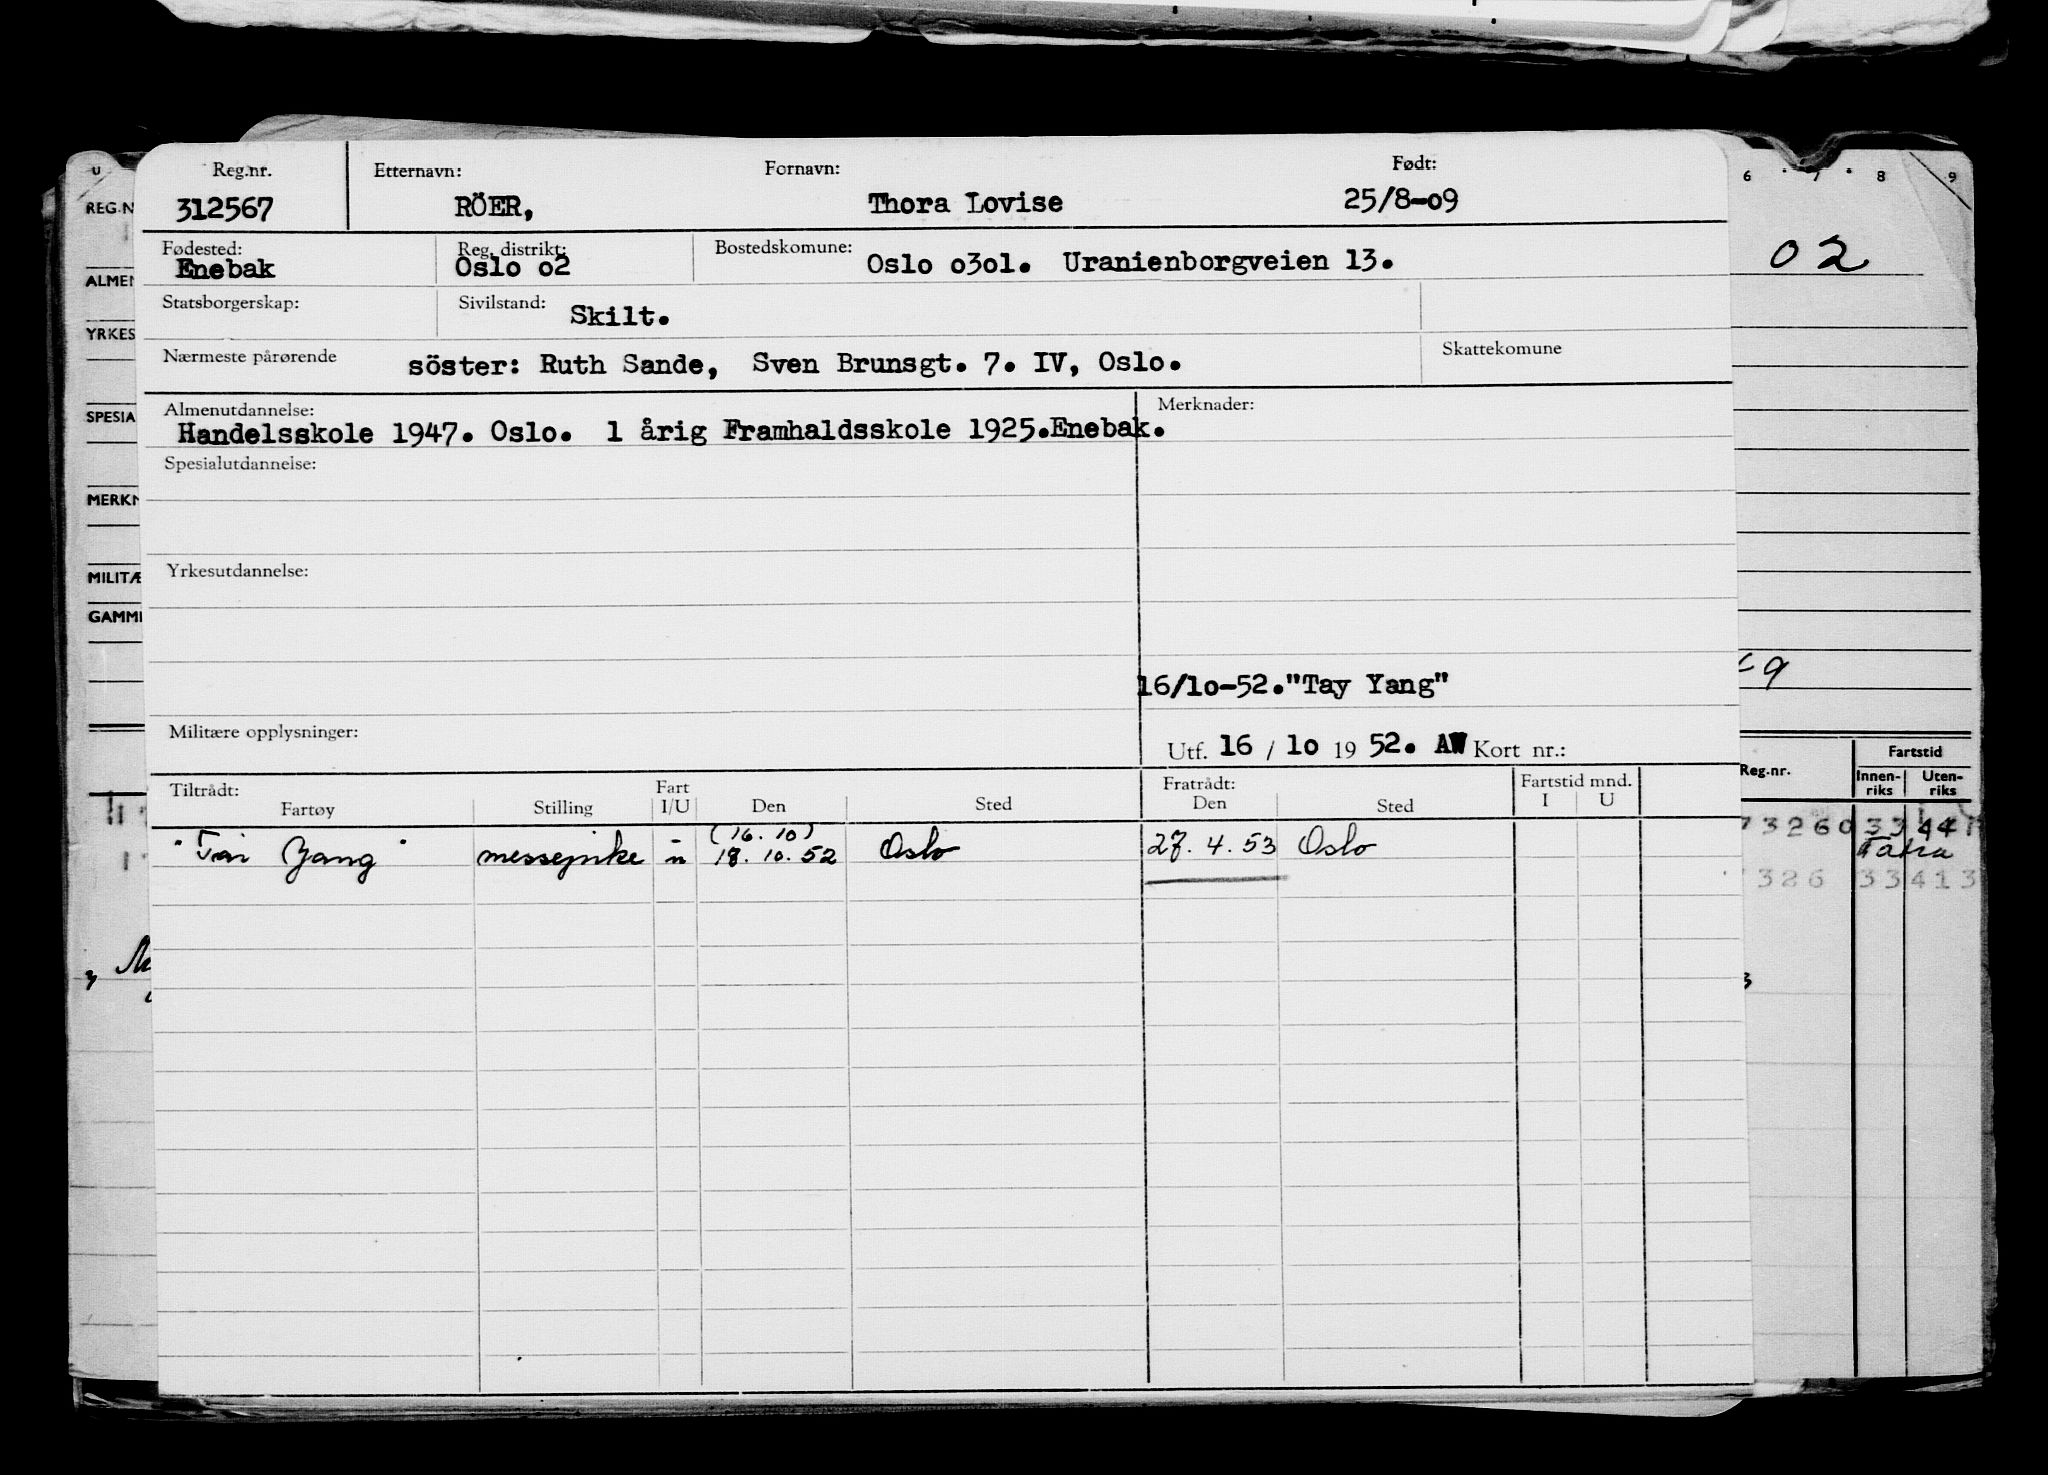 Reg.nr. Etternavn: Fornavn: Født:
312567 RÖER, Thora Lovise 25/8-o9
Fødested: Reg. distrikt: Bostedskomune:
Enebak Oslo o2 Oslo o3o1. Uranienborgveien 13.
Statsborgerskap: Sivilstand: Skilt.
Nærmeste pårørende söster: Ruth Sande, Sven Brunsgt. 7. IV, Oslo. Skattekomune
Almenutdannelse: Merknader:
Handelsskole 1947. Oslo. 1 årig Framhaldsskole 1925.Enebak.
Spesialutdannelse:
Yrkesutdannelse:
16/1o-52."Tay Yang"
Militære opplysninger:
Utf. 16 / 1o 19 52. AW Kort nr.:
Tiltrådt: Fart Fratrådt: Fartstid mnd.
Fartøy Stilling I/U Den Sted Den Sted I U
(16.10)
"Tai Yang" messepike u 18.10.52 Oslo 27.4.53 Oslo
U
REG.N
ALMEN
YRKES
SPESIA
MERKN
MILITÆ
GAMME
6 7 8 9
02
9
Reg.nr. Fartstid
Innen-riks Uten-riks
73260 33441
Tatra
326 33413
3